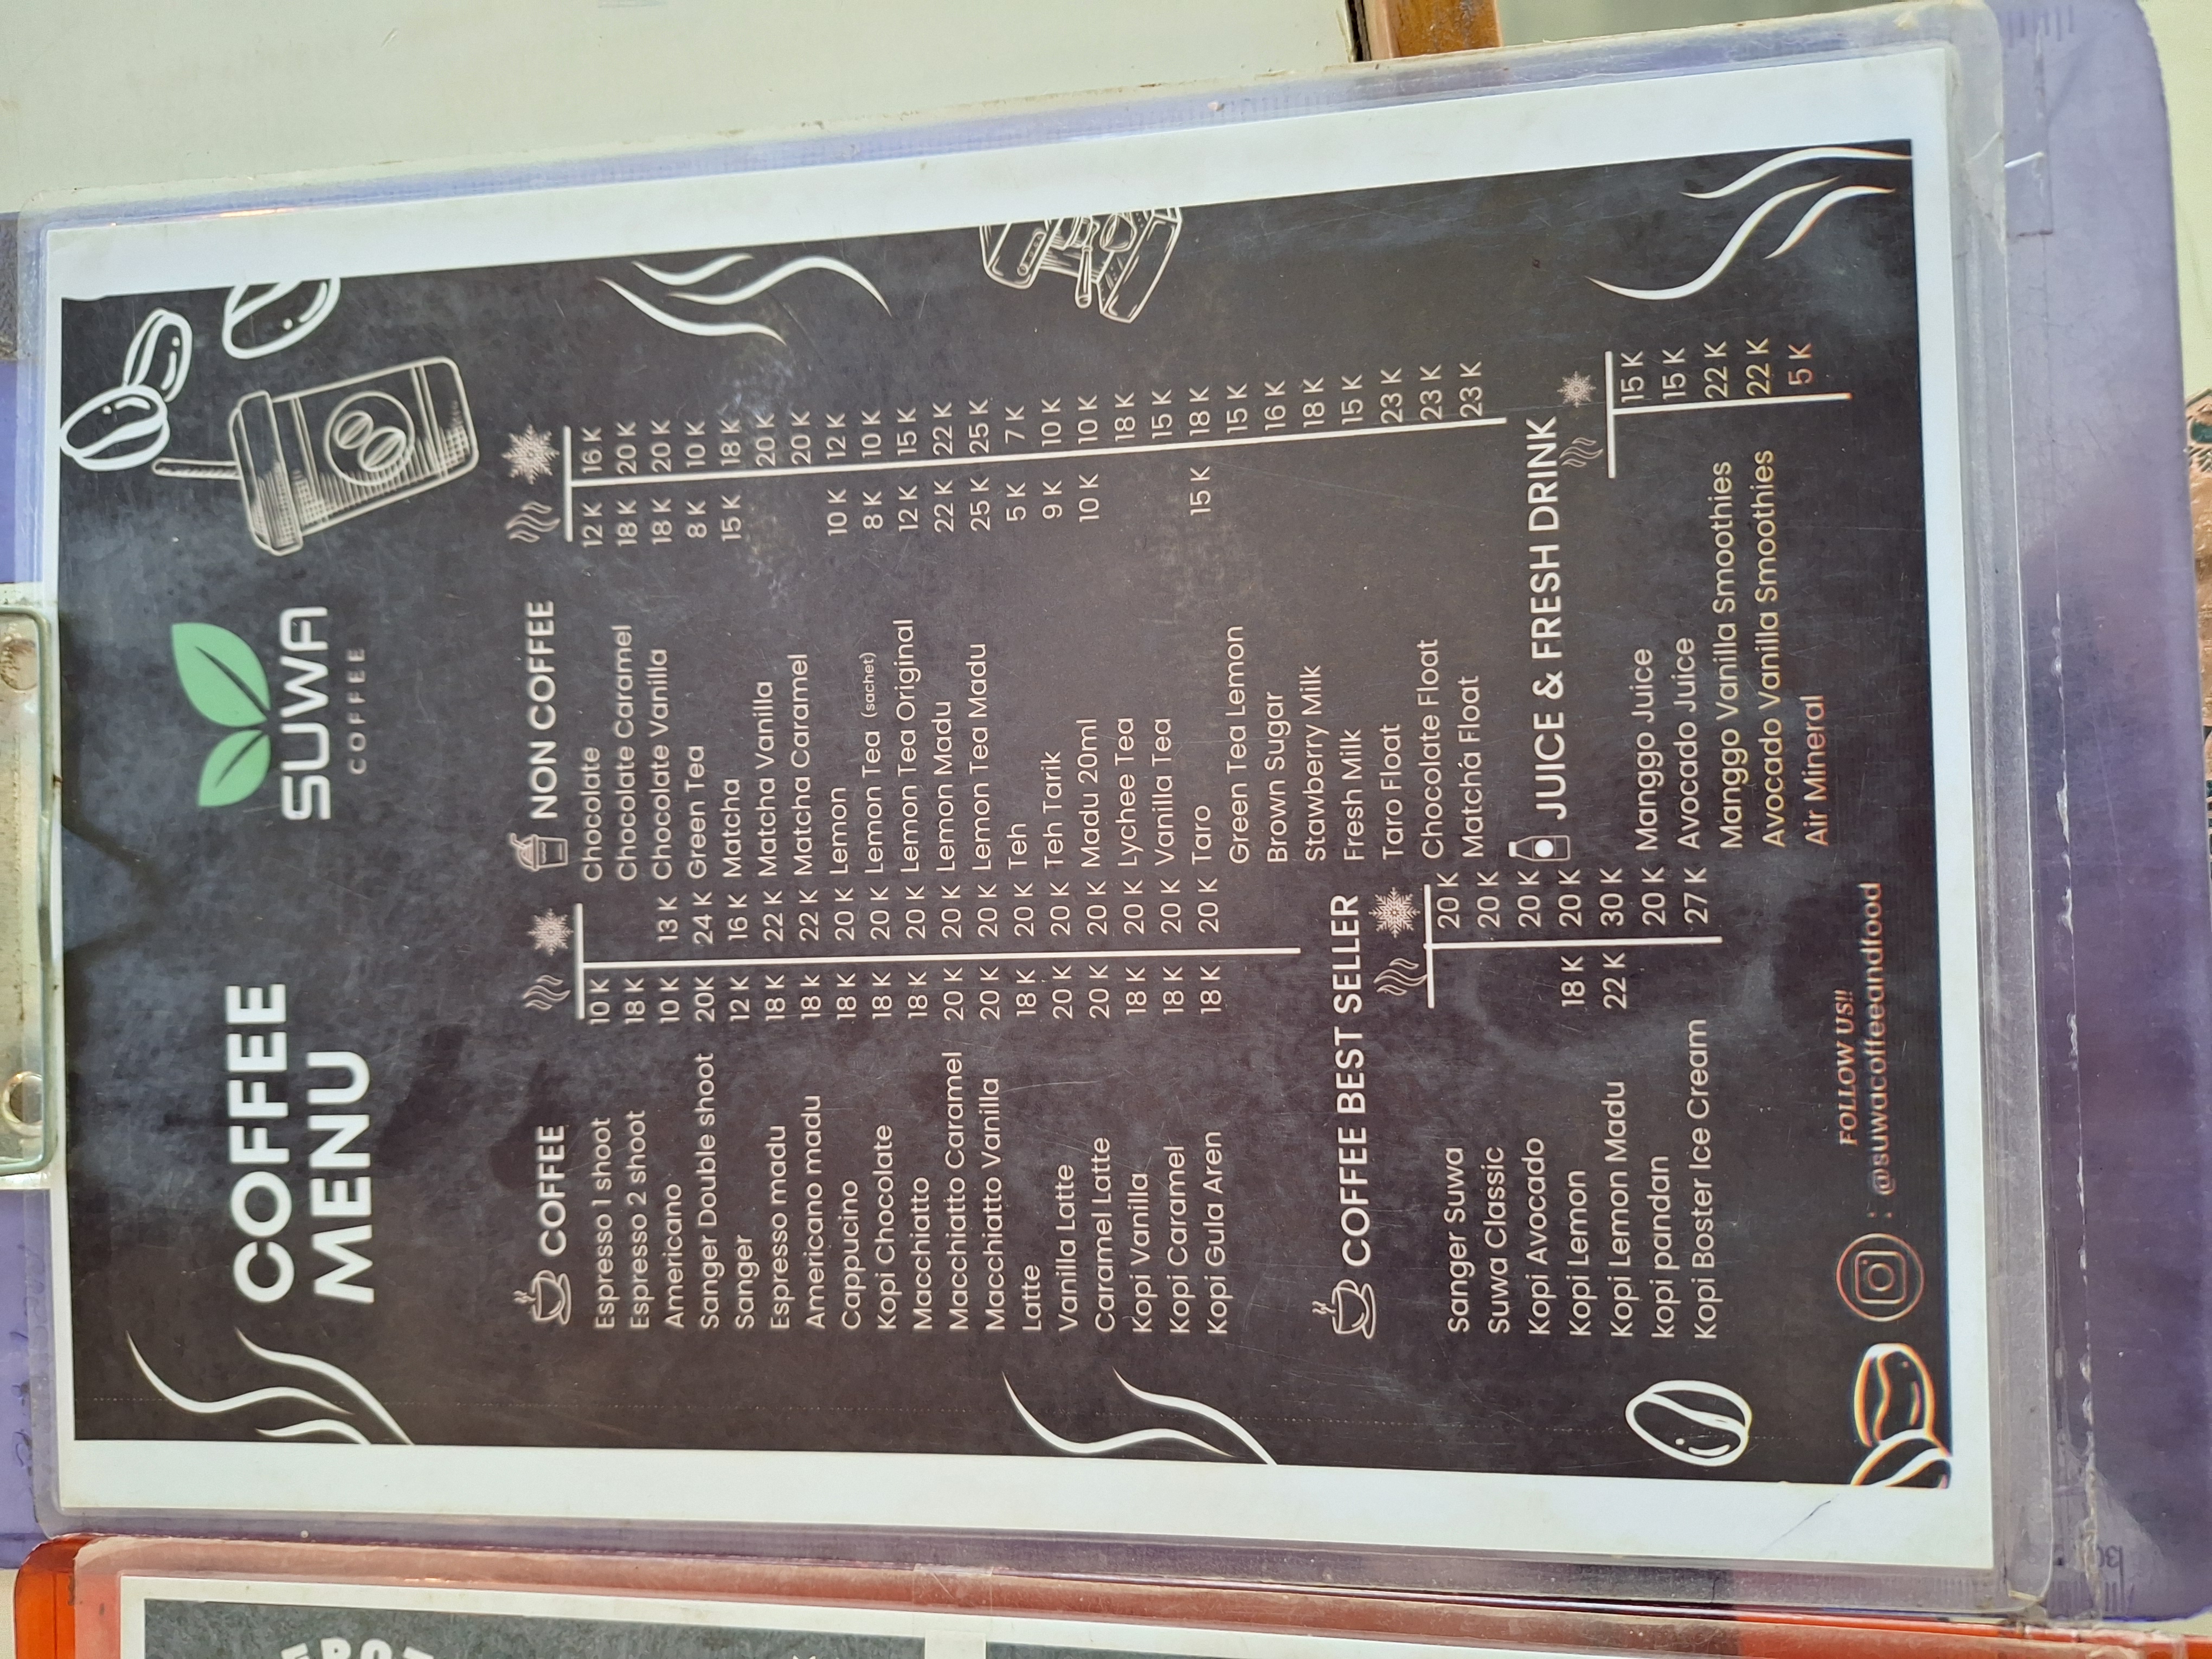 COFFEE
MENU
SUWA
COFFEE
COFFEE
Espresso 1 shoot 10 K
Espresso 2 shoot 18 K
Americano 10 K 13 K
Sanger Double shoot 20K 24 K
Sanger 12 K 16 K
Espresso madu 18 K 22 K
Americano madu 18 k 22 K
Cappucino 18 K 20 K
Kopi Chocolate 18 K 20 K
Macchiatto 18 K 20 K
Macchiatto Caramel 20 K 20 K
Macchiatto Vanilla 20 K 20 K
Latte 18 K 20 K
Vanilla Latte 20 K 20 K
Caramel Latte 20 K 20 K
Kopi Vanilla 18 K 20 K
Kopi Caramel 18 K 20 K
Kopi Gula Aren 18 K 20 K
COFFEE BEST SELLER
Sanger Suwa 20 K
Suwa Classic 20 K
Kopi Avocado 20 K
Kopi Lemon 18 K 20 K
Kopi Lemon Madu 22 K 30 K
kopi pandan 20 K
Kopi Boster Ice Cream 27 K
NON COFFEE
Chocolate 12 K 16 K
Chocolate Caramel 18 K 20 K
Chocolate Vanilla 18 K 20 K
Green Tea 8 K 10 K
Matcha 15 K 18 K
Matcha Vanilla 20 K
Matcha Caramel 20 K
Lemon 10 K 12 K
Lemon Tea (sachet) 8 K 10 K
Lemon Tea Original 12 K 15 K
Lemon Madu 22 K 22 K
Lemon Tea Madu 25 K 25 K
Teh 5 K 7 K
Teh Tarik 9 K 10 K
Madu 20ml 10 K 10 K
Lychee Tea 18 K
Vanilla Tea 15 K
Taro 15 K 18 K
Green Tea Lemon 15 K
Brown Sugar 16 K
Stawberry Milk 18 K
Fresh Milk 15 K
Taro Float 23 K
Chocolate Float 23 K
Matcha Float 23 K
JUICE & FRESH DRINK
Manggo Juice 15 K
Avocado Juice 15 K
Manggo Vanilla Smoothies 22 K
Avocado Vanilla Smoothies 22 K
Air Mineral 5 K
FOLLOW US!!
: @suwacoffeeandfood